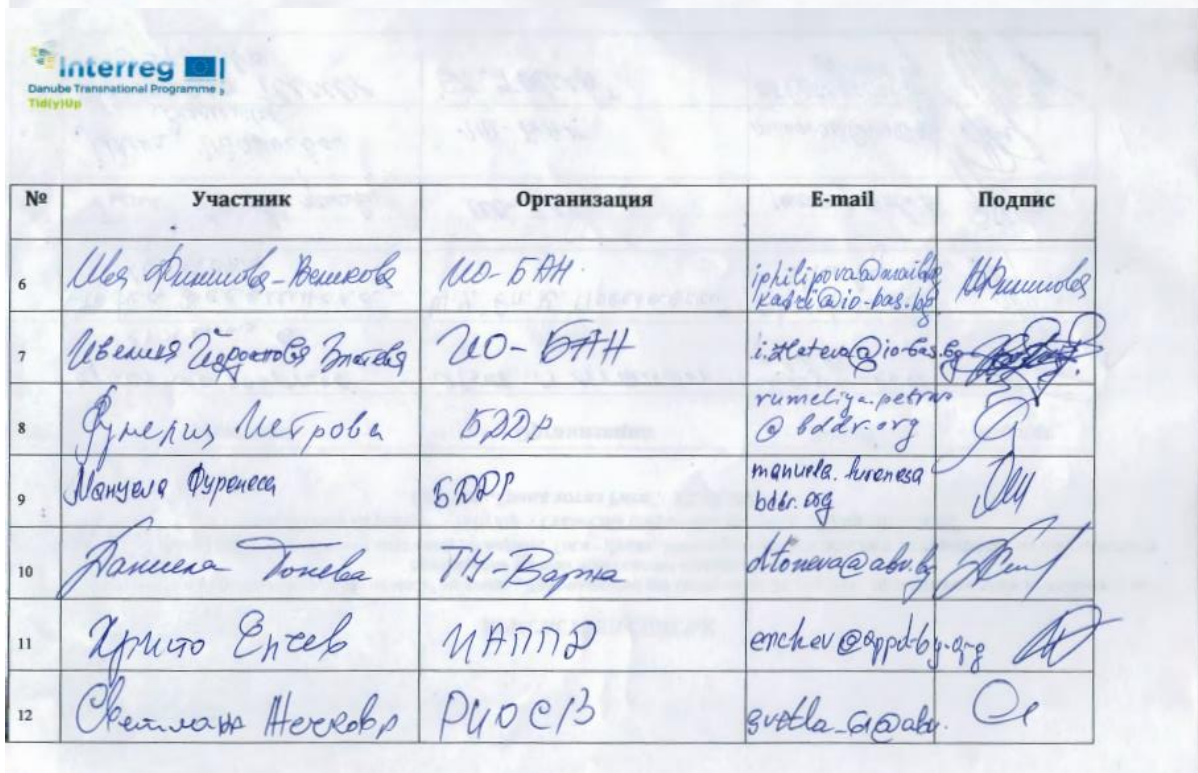 Interreg
Danube Transnational Programme
Tid(y)Up
№ Участник Организация E-mail Подпис
6 Ива Филипова- ИО-БАН.
iphilipova@mail.bg
@io-bas.bg
7 Ивелия Златева ИО-БАН i.zlateva@io-bas.bg
8 Румелия Петрова БДДР rumeliya.petrova
@ bddr.org
9 Мануела Фуронеса БДДР manuela.furonesa
bddr.org
10 Даниела Тонева ТУ-Варна dtoneva@abv.bg
11 Христо Енчев ИАППД enchev@appd-bg.org
12 Светлана Жечкова РИОСВ @abv.